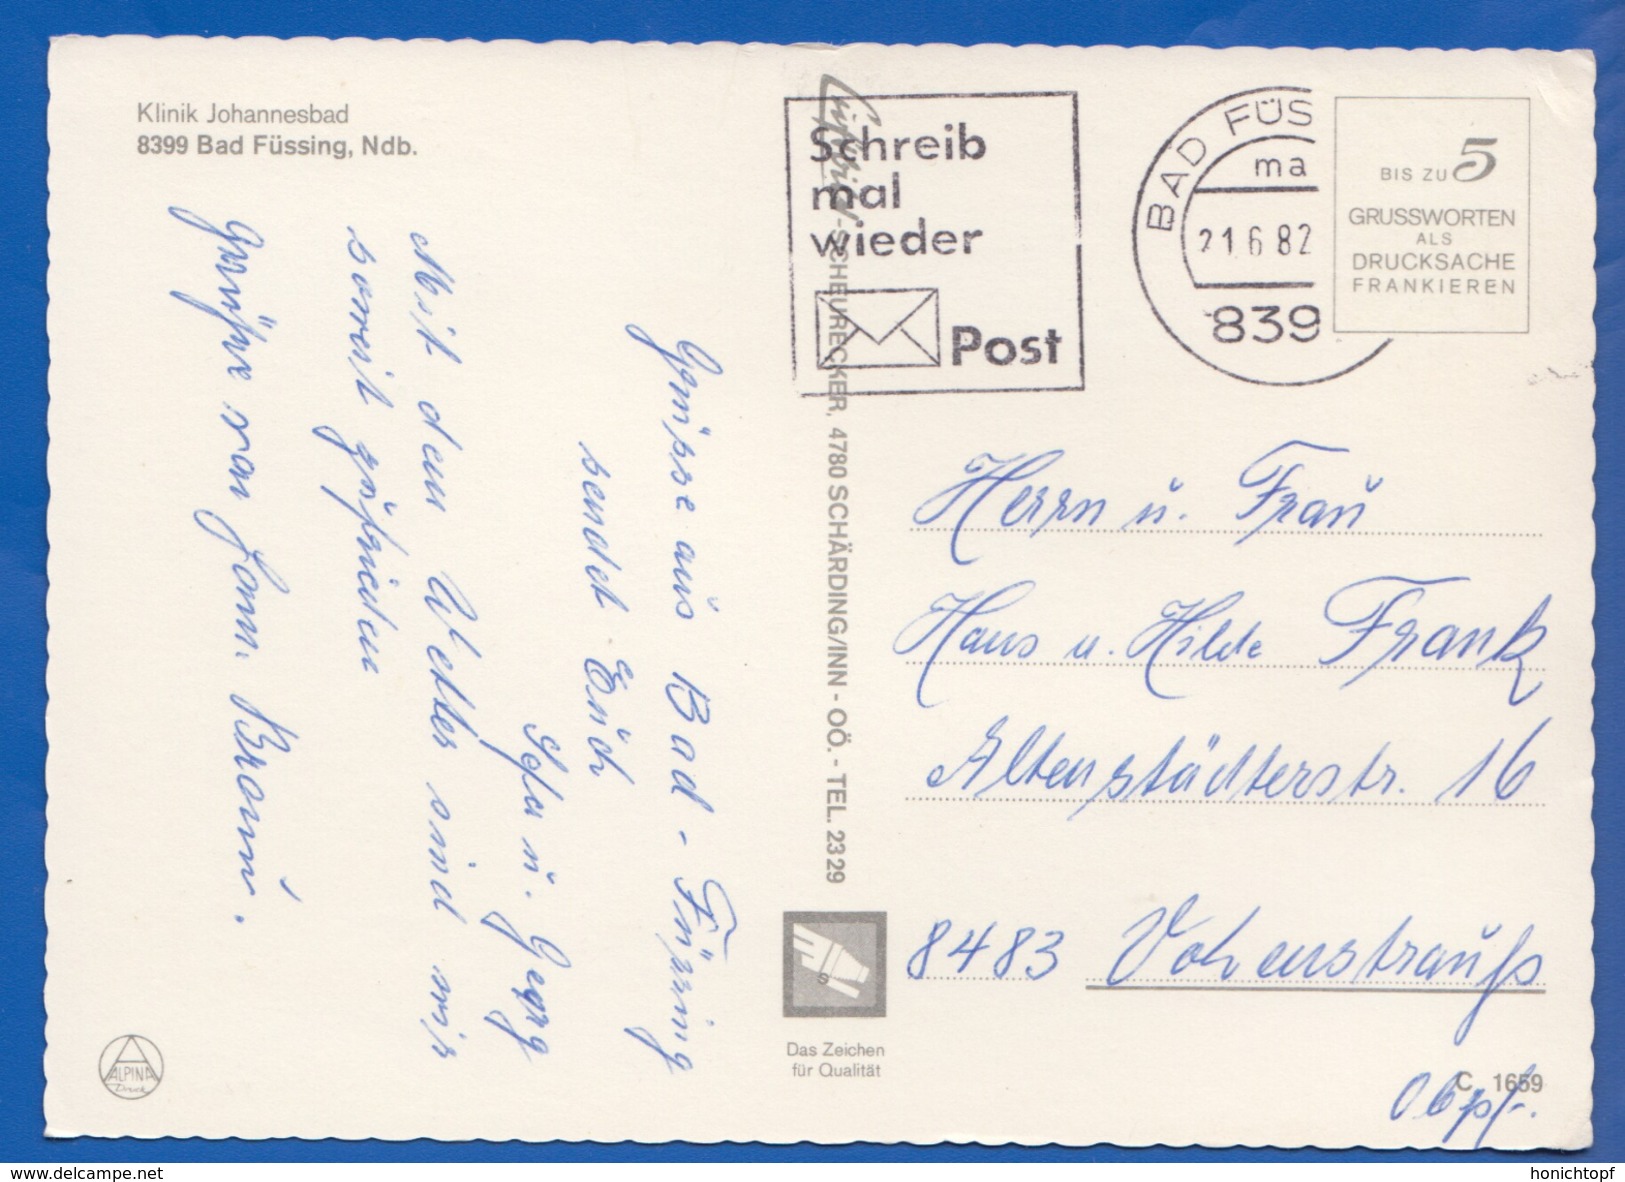 Klinik Johannesbad
8399 Bad Füssing, Ndb.
Grüsse aus Bad-Füssing
sendet Euch
u. Georg
Mit dem Wetter sind wir
soweit zufrieden
Grüße von Fam. Braun.
-SCHEURECKER, 4780 SCHÄRDING/INN - OÖ. - TEL. 2329
Das Zeichen
für Qualität
ALPINA
Druck
Schreib
mal
wieder
Post
BAD FÜS
ma
21.6.82
839
BIS ZU 5
GRUSSWORTEN
ALS
DRUCKSACHE
FRANKIEREN
Herrn u. Frau
Hans u. Hilde Frank
Altenstädterstr. 16
8483 Vohenstrauß
Obpf.
C 1659
delcampe.net
honichtopf